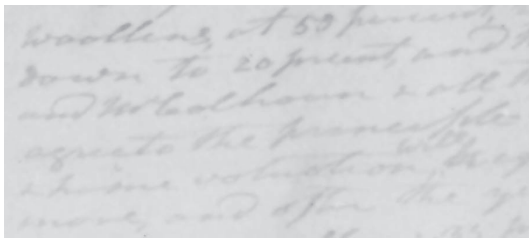 woollens, at 50 percent,
down to 20 prcent, and
and Mr Calhoun & all
agree to the principle
home valuation, will
more, and after the